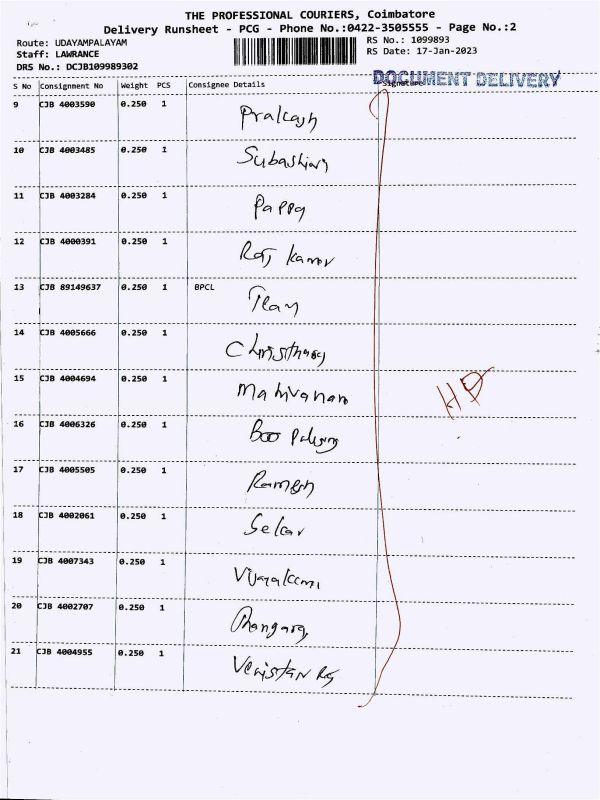 THE PROFESSIONAL COURIERS, Coimbatore
Delivery Runsheet - PCG - Phone No.:0422-3505555 - Page No.:2
Route: UDAYAMPALAYAM
RS No.: 1099893
Staff: LAWRANCE
RS Date: 17-Jan-2023
DRS No.: DCJB109989302
DOCUMENT DELIVERY
S No Consignment No Weight PCS Consignee Details Signature
9 CJB 4003590 0.250 1 Prakash
10 CJB 4003485 0.250 1
11 CJB 4003284 0.250 1 Pappa
12 CJB 4000391 0.250 1 Raj Kumar
13 CJB 89149637 0.250 1 BPCL
14 CJB 4005666 0.250 1
15 CJB 4004694 0.250 1 Mathivanan
HD
16 CJB 4006326 0.250 1
17 CJB 4005505 0.250 1 Ramesh
18 CJB 4002061 0.250 1 Sekar
19 CJB 4007343 0.250 1
20 CJB 4002707 0.250 1 Thangaraj
21 CJB 4004955 0.250 1